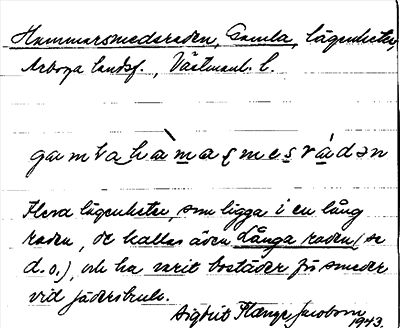 Hammarsmedsraden, Gamla, lägenheter,
Arboga landsf., Västmanl. l.
gamla hamaṣmesrádən
Flera lägenheter, som ligga i en lång
raden, de kallas även Långa raden (se
d.o.), och ha varit bostäder för smeder
vid Jädersbruk.
Sigbrit Plænge Jacobson
1943.